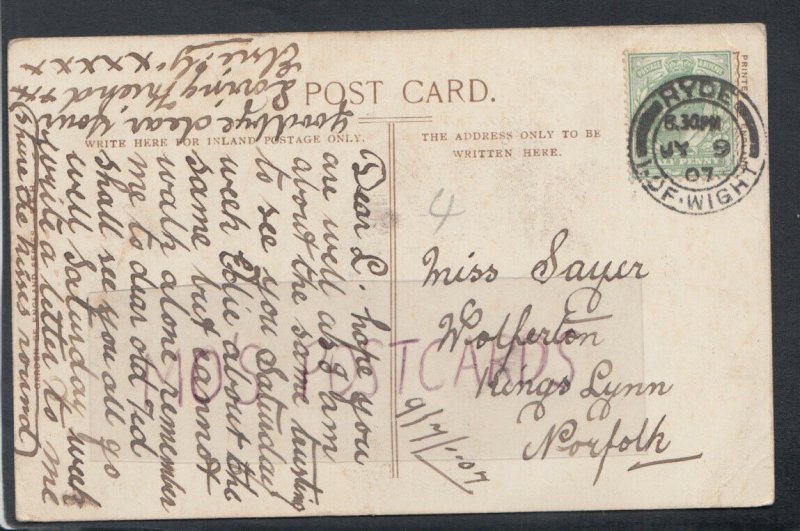 POST CARD.
WRITE HERE FOR INLAND POSTAGE ONLY.
THE ADDRESS ONLY TO BE
WRITTEN HERE.
RYDE
6.30PM
JY 9
07
I. OF. WIGHT
4
Miss Sayer
Wolferton
Kings Lynn
Norfolk
9/7/1.07
Dear L. hope you
are well as I am
about the same trusting
to see you Saturday
week Edie about the
same but cannot
walk alone remember
me to dear old Ted
shall see you all go
well Saturday week
write a letter to me
(share the kisses round)
goodbye dear, your
loving friend xx
xxxx
MO'S POSTCARDS